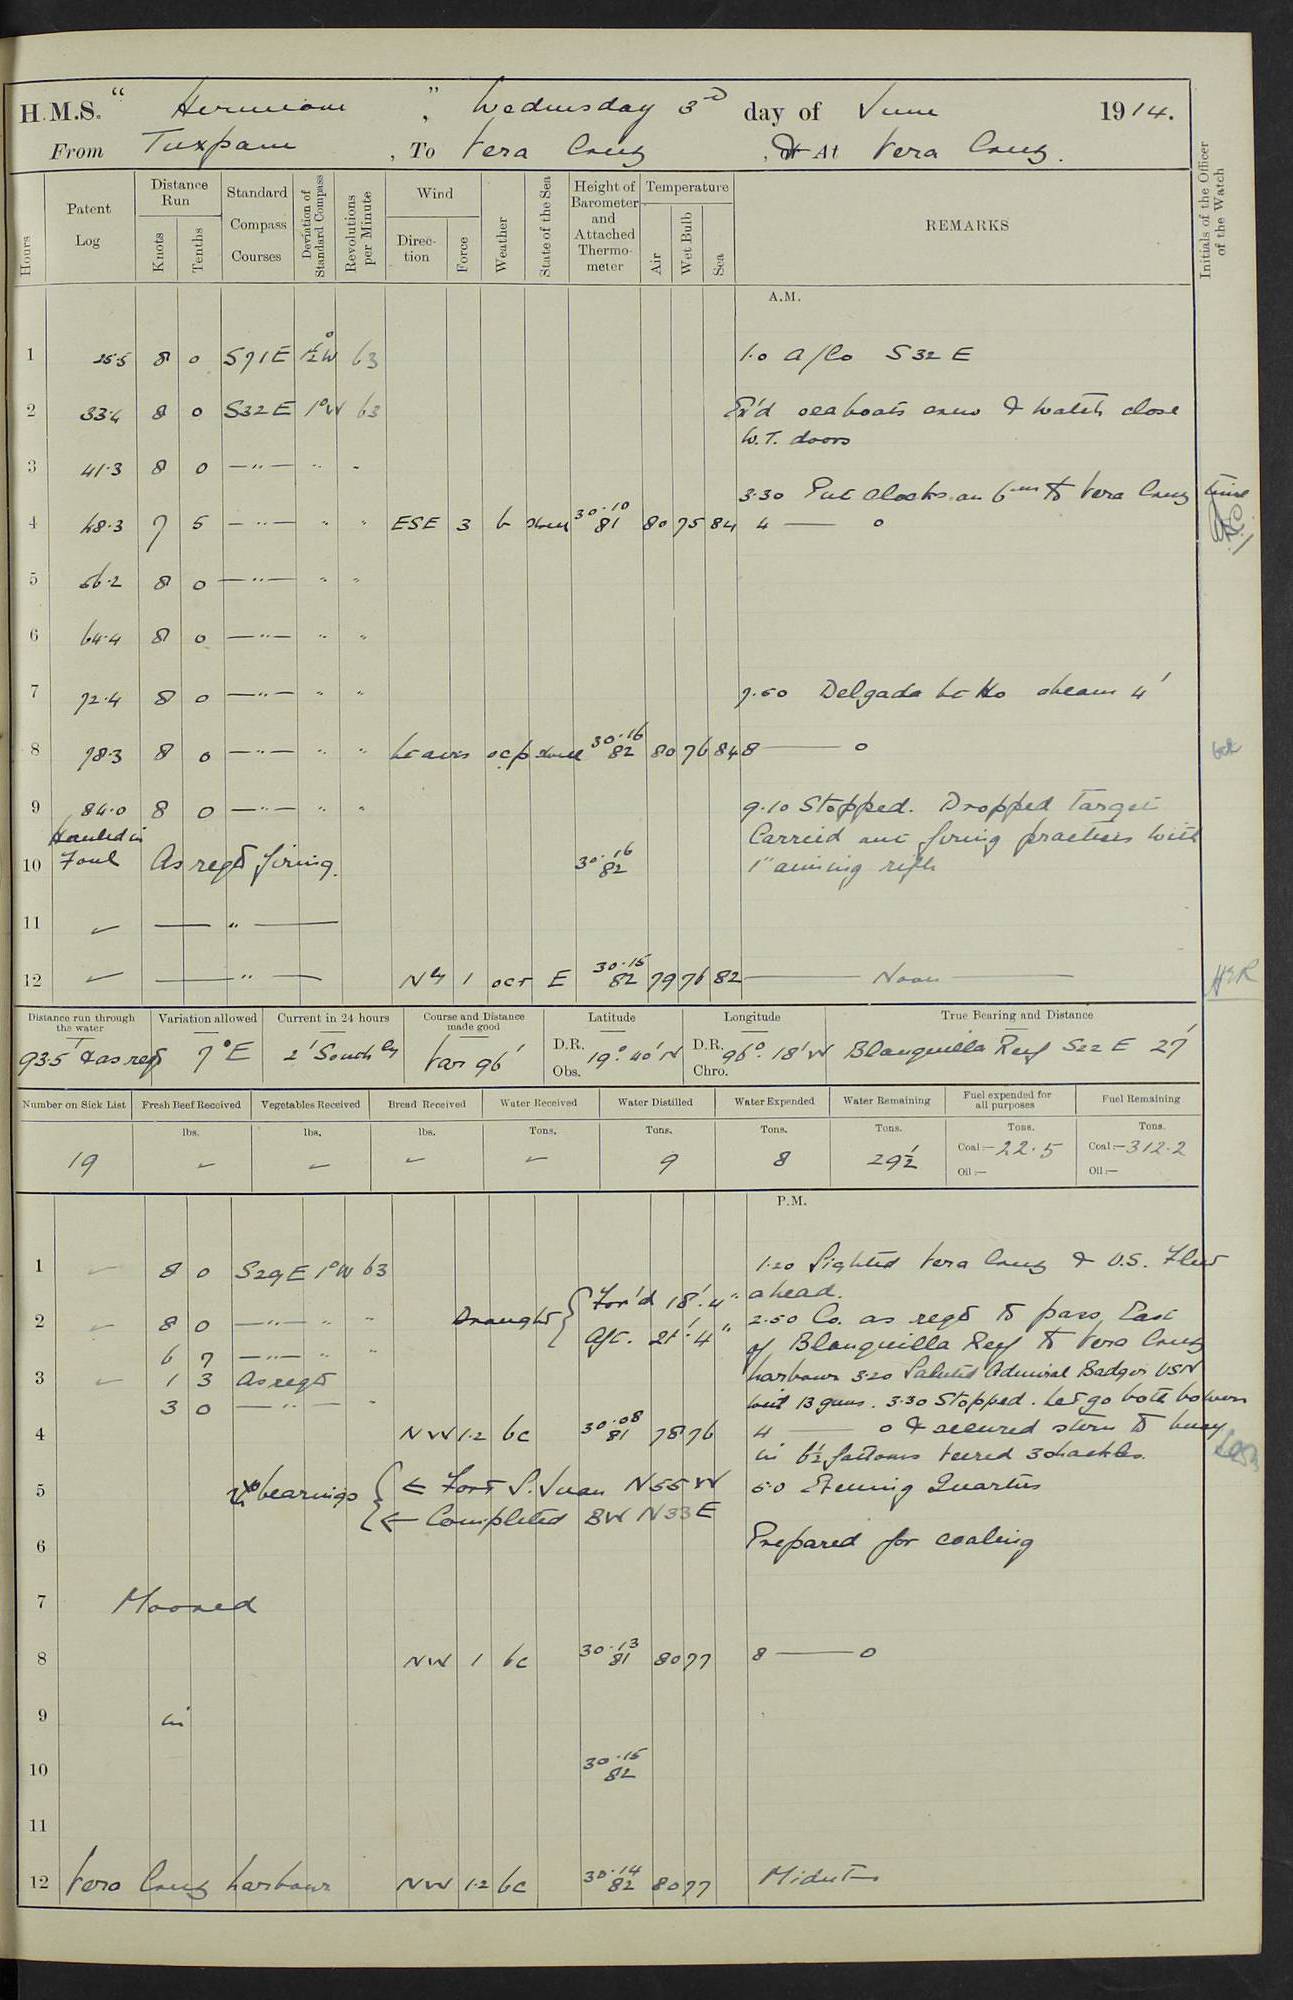 H.M.S. “ Hermione ”, Wednesday 3rd day of June 1914.
From Tuxpam, To Vera Cruz, or At Vera Cruz.
Hours
Patent Log
Distance Run
Knots
Tenths
Standard Compass Courses
Deviation of Standard Compass
Revolutions per Minute
Wind
Direction
Force
Weather
State of the Sea
Height of Barometer and Attached Thermometer
Temperature
Air
Wet Bulb
Sea
REMARKS
Initials of the Officer of the Watch
A.M.
1 25.5 8 0 S71E 1½°W 63 1.0 A/Co S32E
2 33.4 8 0 S32E 1°W 63 Ex'd seaboats crew & watch close
W.T. doors
3 41.3 8 0 —"— " "
3.30 Put Clocks on 6 ms to Vera Cruz time
4 48.3 7 5 —"— " " ESE 3 b Swell 30.10 81 80 75 84 4 —— 0
5 56.2 8 0 —"— " "
6 64.4 8 0 —"— " "
7 72.4 8 0 —"— " " 7.50 Delgada Lt Ho abeam 4'
8 78.3 8 0 —"— " " Lt airs ocp Swell 30.16 82 80 76 84 8 —— 0
9 84.0 8 0 —"— " " 9.10 Stopped. Dropped target
Hauled in Carried out firing practices with
10 Foul As reqd firing. 30.16 82 1" aiming rifle
11 ✓ —— " ——
12 ✓ —— " —— N'ly 1 ocr E 30.15 82 79 76 82 —— Noon ——
Distance run through the water
Variation allowed
Current in 24 hours
Course and Distance made good
Latitude
Longitude
True Bearing and Distance
93.5' & as reqd 7°E 2' South'ly Var 96' D.R. 19°.40'N D.R. 96°.18'W Blanquilla Reef S22E 27'
Obs. Chro.
Number on Sick List
Fresh Beef Received
Vegetables Received
Bread Received
Water Received
Water Distilled
Water Expended
Water Remaining
Fuel expended for all purposes
Fuel Remaining
lbs. lbs. lbs. Tons. Tons. Tons. Tons. Tons. Tons.
19 ✓ ✓ ✓ ✓ 9 8 29½ Coal:—22.5 Coal:—312.2
Oil:— Oil:—
P.M.
1 ✓ 8 0 S29E 1°W 63 1.20 Sighted Vera Cruz & U.S. Fleet
Draught { For'd 18'.4" ahead.
2 ✓ 8 0 —"— " " 2.50 Co. as reqd to pass East
Aft. 21'.4" of Blanquilla Reef to Vera Cruz
6 7 —"— " "
3 ✓ 1 3 As reqd harbour 3.20 Saluted Admiral Badger USN
3 0 —"— " with 13 guns. 3.30 Stopped. Let go both bowers
4 NW 1.2 bc 30.08 81 78 76 4 —— 0 & secured stern to buoy
in 6½ fathoms veered 3 shackles.
5 bearings { ← Fort S. Juan N55W 5.0 Evening Quarters
← Completed BW N33E
6 Prepared for coaling
7 Moored
8 NW 1 bc 30.13 81 80 77 8 —— 0
9 in
10 30.15 82
11
12 Vera Cruz harbour NW 1.2 bc 30.14 82 80 77 Midnt